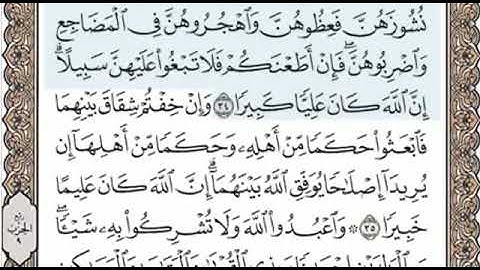 نُشُوزَهُنَّ فَعِظُوهُنَّ وَٱهْجُرُوهُنَّ فِي ٱلْمَضَاجِعِ
وَٱضْرِبُوهُنَّ ۖ فَإِنْ أَطَعْنَكُمْ فَلَا تَبْغُوا۟ عَلَيْهِنَّ سَبِيلًا ۗ
إِنَّ ٱللَّهَ كَانَ عَلِيًّا كَبِيرًا ٣٤ وَإِنْ خِفْتُمْ شِقَاقَ بَيْنِهِمَا
فَٱبْعَثُوا۟ حَكَمًا مِّنْ أَهْلِهِۦ وَحَكَمًا مِّنْ أَهْلِهَآ إِن
يُرِيدَآ إِصْلَٰحًا يُوَفِّقِ ٱللَّهُ بَيْنَهُمَآ ۗ إِنَّ ٱللَّهَ كَانَ عَلِيمًا
خَبِيرًا ٣٥ ۞ وَٱعْبُدُوا۟ ٱللَّهَ وَلَا تُشْرِكُوا۟ بِهِۦ شَيْـًٔا ۖ
ربع
الحزب
٩